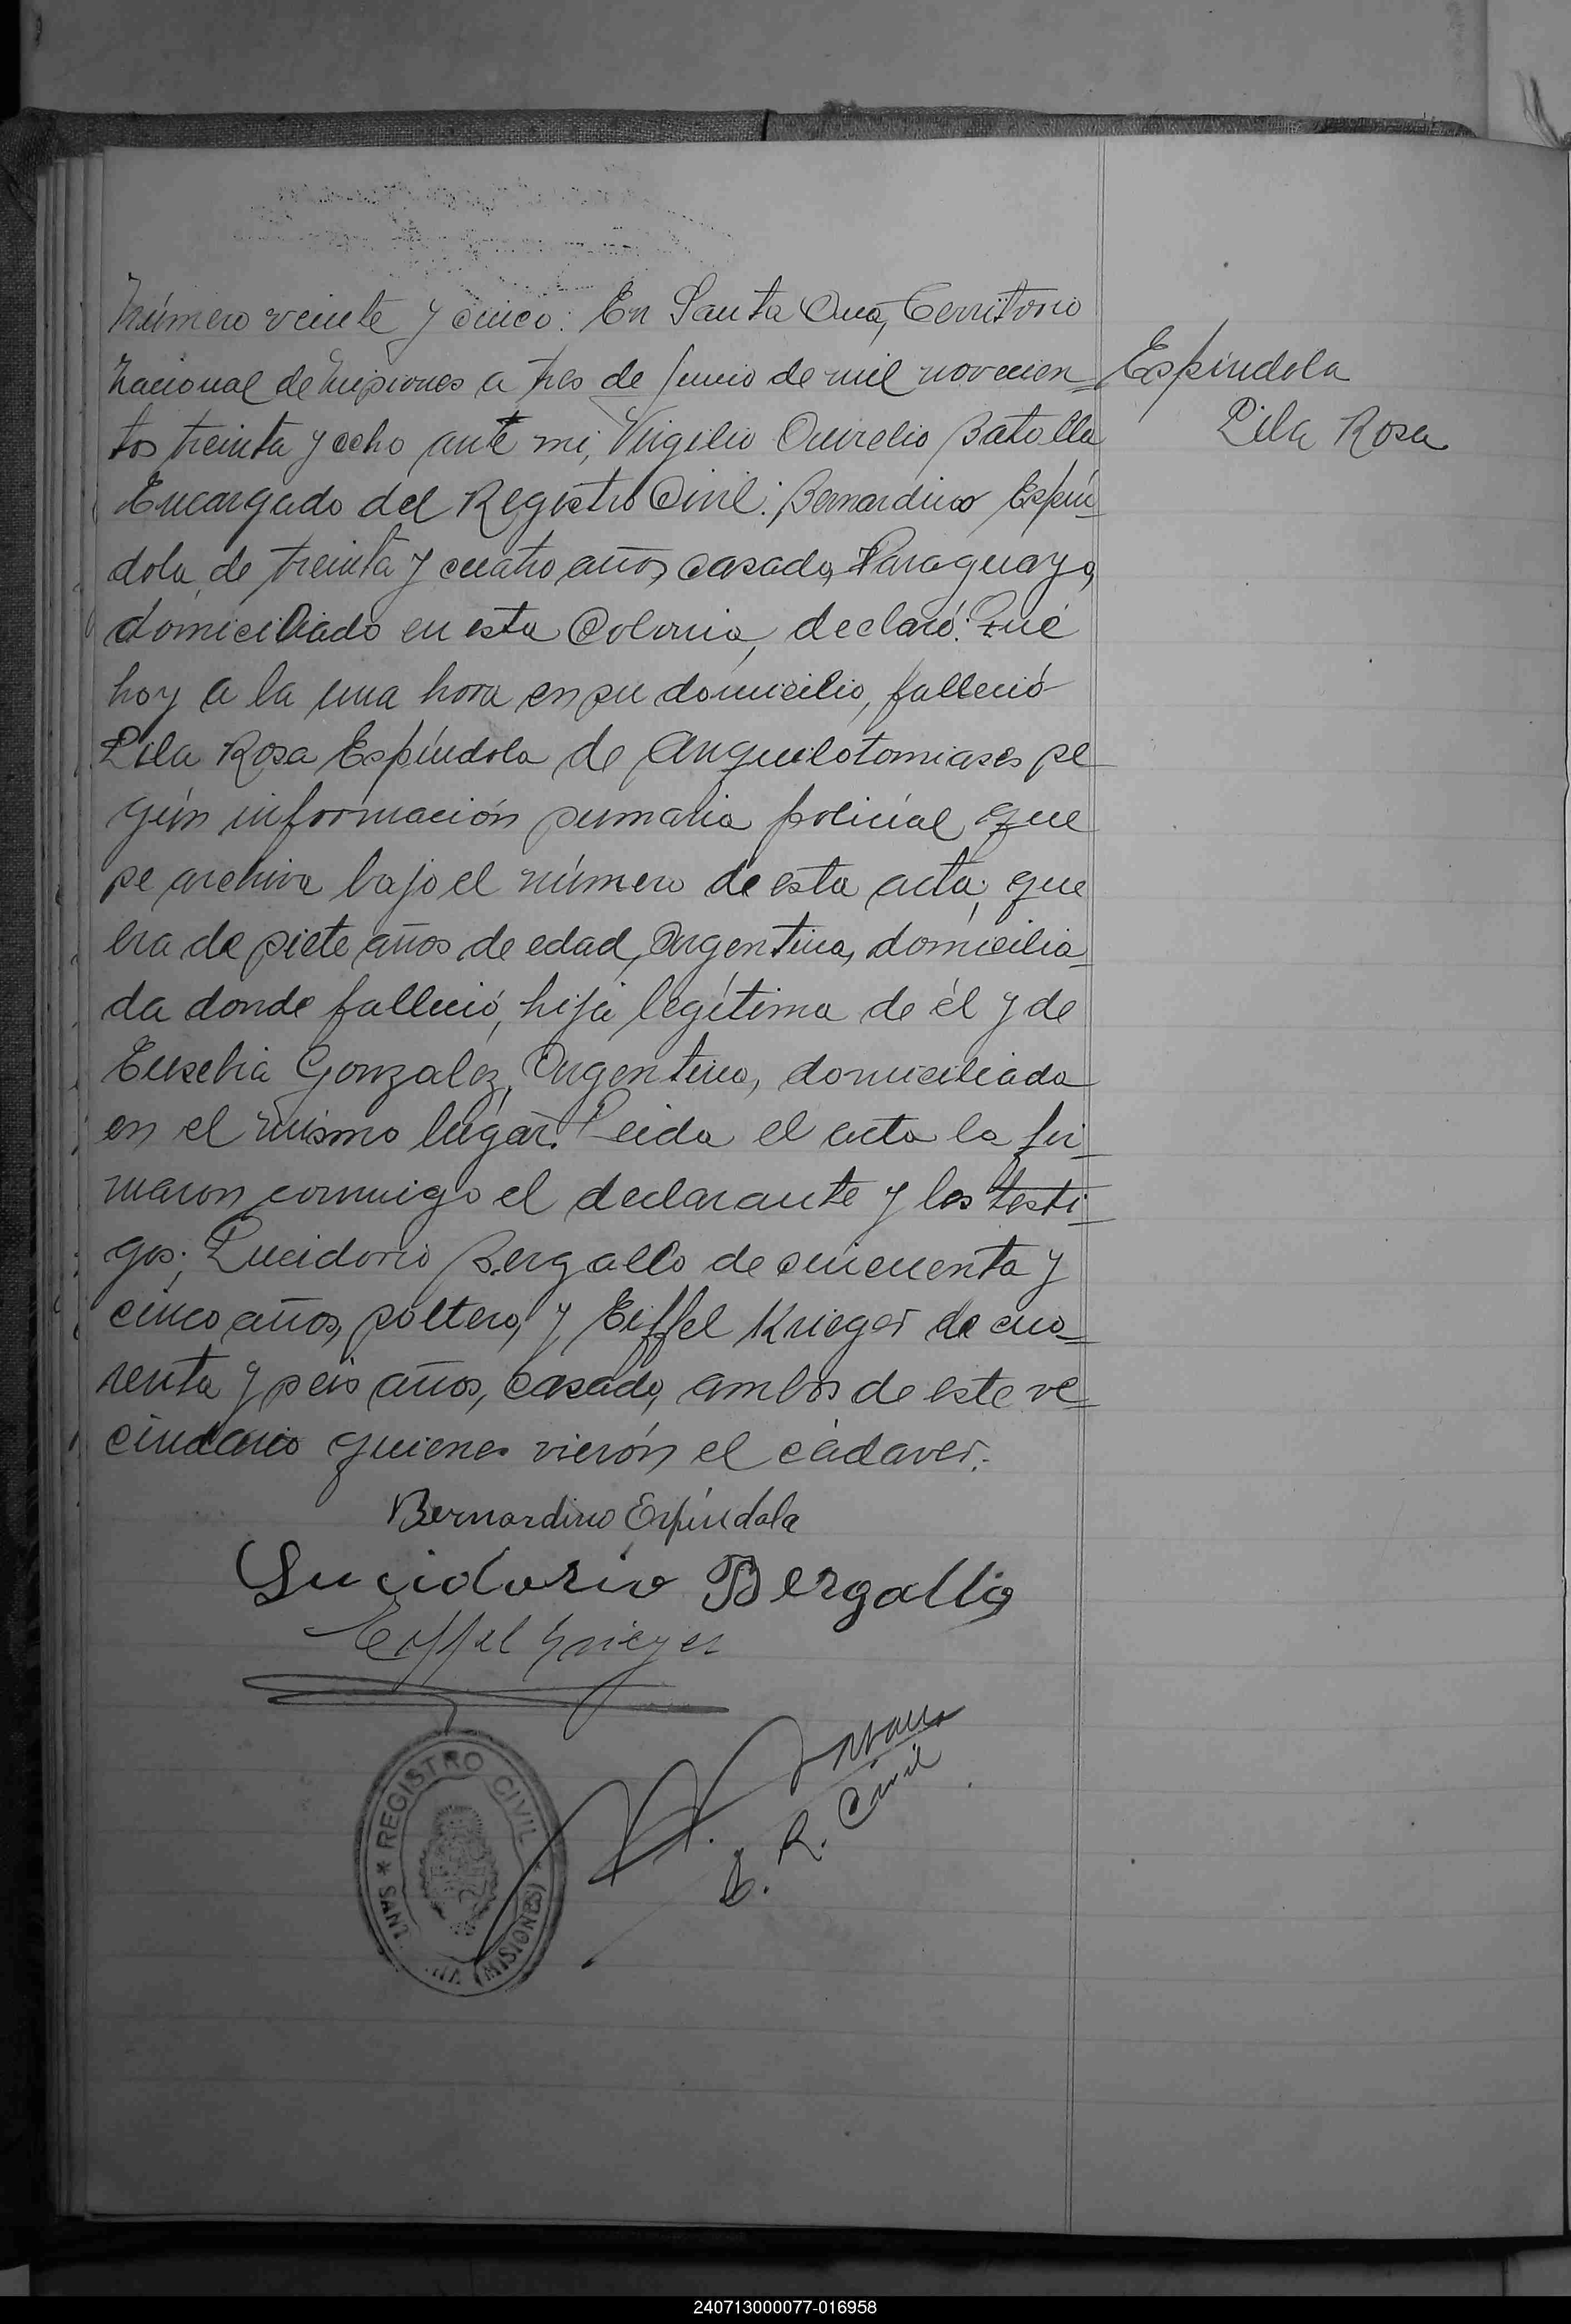 Número veinte y cinco: En Santa Ana, Territorio
Nacional de Misiones a tres de Junio de mil novecien=
tos treinta y ocho ante mi, Virgilio Aurelio Batalla
Encargado del Registro Civil: Bernardino Espín=
dola, de treinta y cuatro años, casado, Paraguayo,
domiciliado en esta Colonia, declaró: Qué
hoy a la una hora en su domicilio, falleció
Lila Rosa Espíndola de Anquilotomiases se
gún información sumaria policial que
se archiva bajo el número de esta acta; que
era de siete años de edad, Argentina, domicilia=
da donde falleció, hija legítima de él y de
Eusebia Gonzalez, Argentina, domiciliada
en el mismo lugar. Leida el acta la fir=
maron conmigo el declarante y los testi=
gos; Lucidorio Bergallo de cincuenta y
cinco años, soltero, y Eiffel Krieger de cua=
renta y seis años, casado, ambos de este ve=
cindario quienes vierón el cádaver.
Espíndola
Lila Rosa
Bernardino Espíndola
Lucidorio Bergallo
Eiffel Krieger
E. R. Civil
* REGISTRO CIVIL *
SANTA ANA (MISIONES)
240713000077-016958